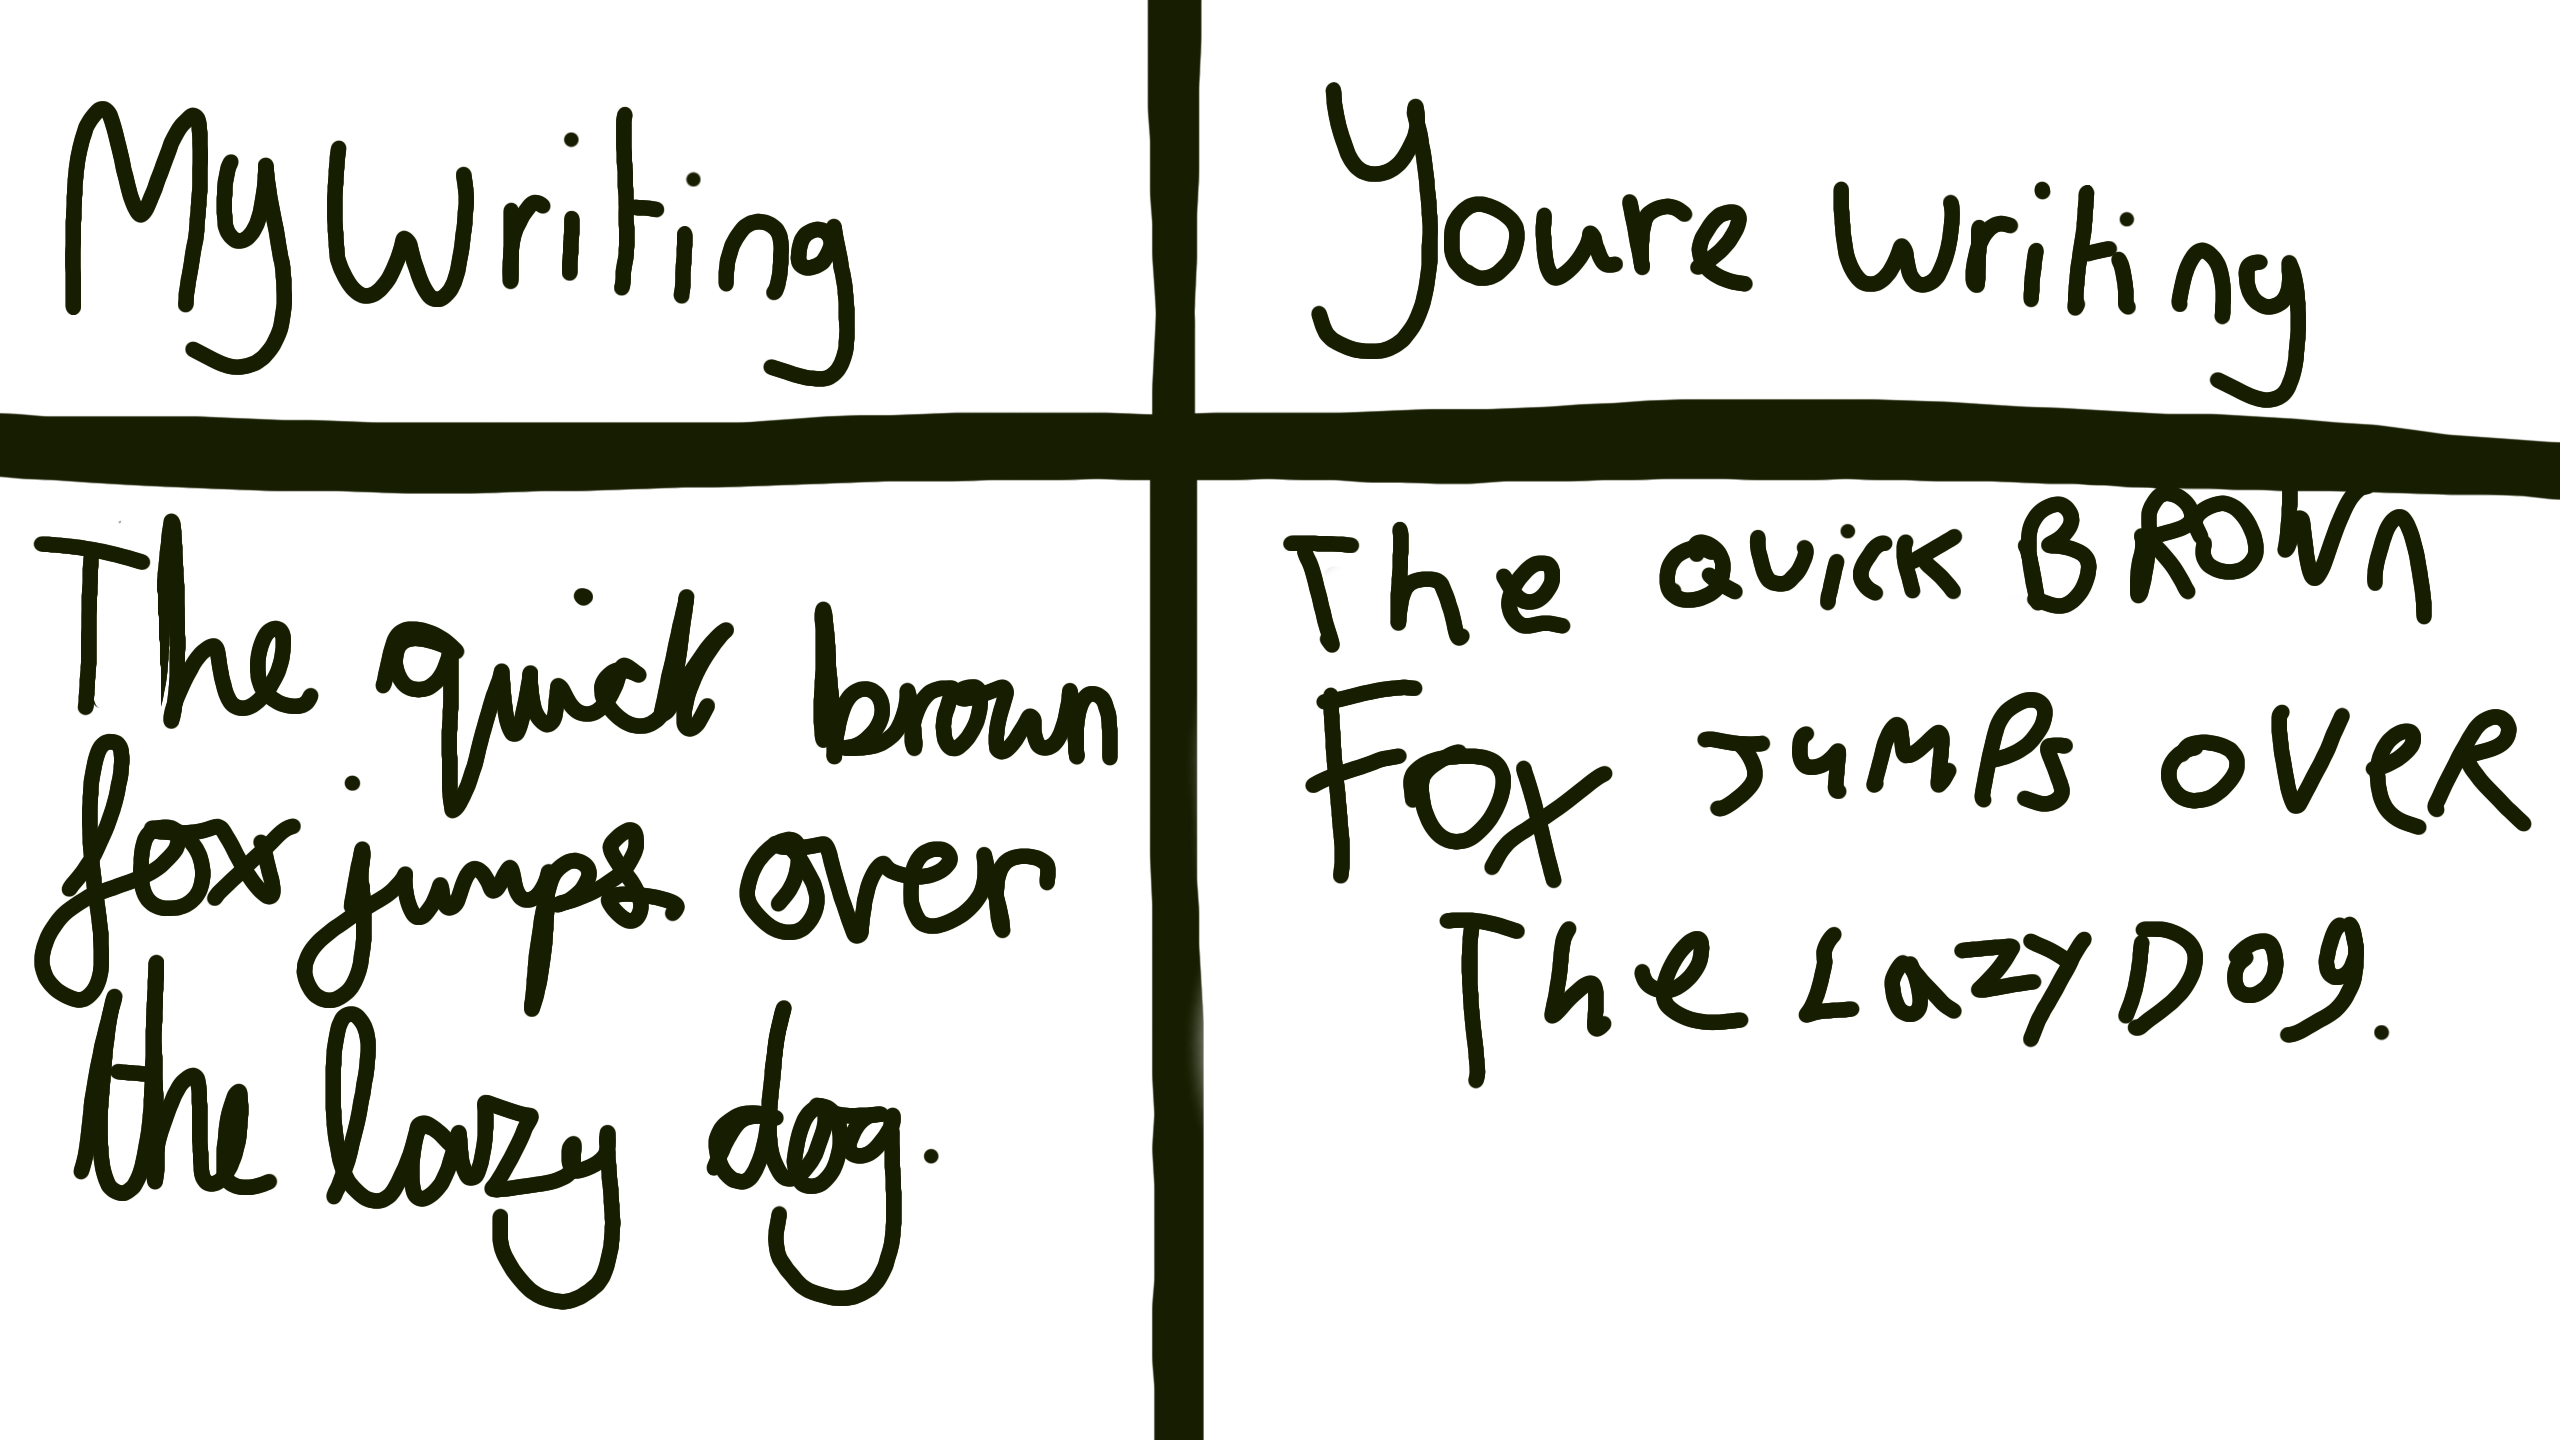 My Writing
Youre Writing
The quick brown
fox jumps over
the lazy dog.
The QUiCK BROWn
FOX JUMPs OVeR
The LazY DOg.